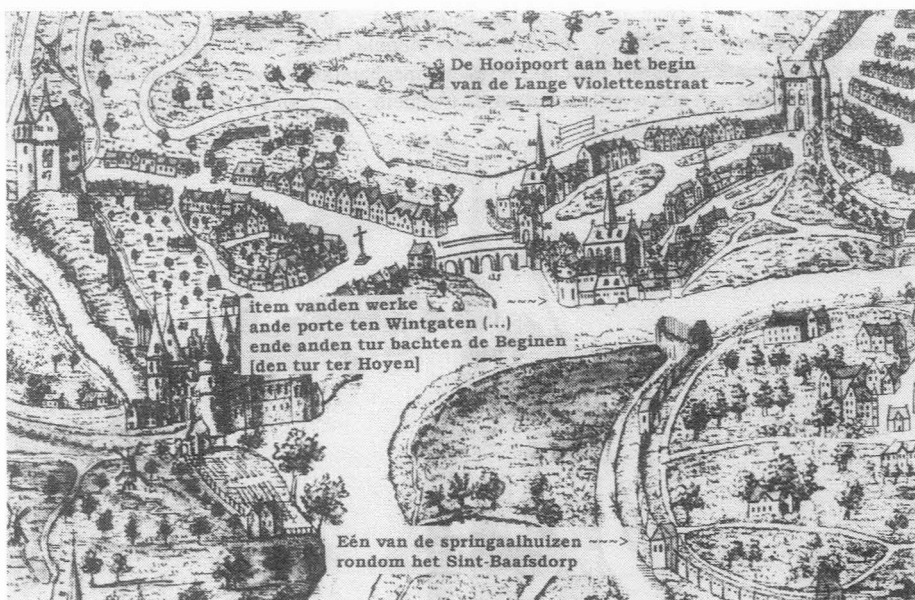 De Hooipoort aan het begin
van de Lange Violettenstraat ---->
item vanden werke ~~~~>
ande porte ten Wintgaten (...)
ende anden tur bachten de Beginen
[den tur ter Hoyen]
Eén van de springaalhuizen ~~~~>
rondom het Sint-Baafsdorp